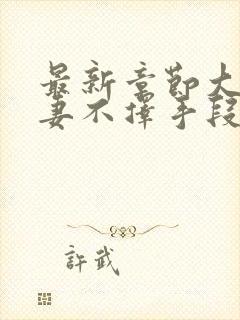 最新章节大
妻不择手段
許武